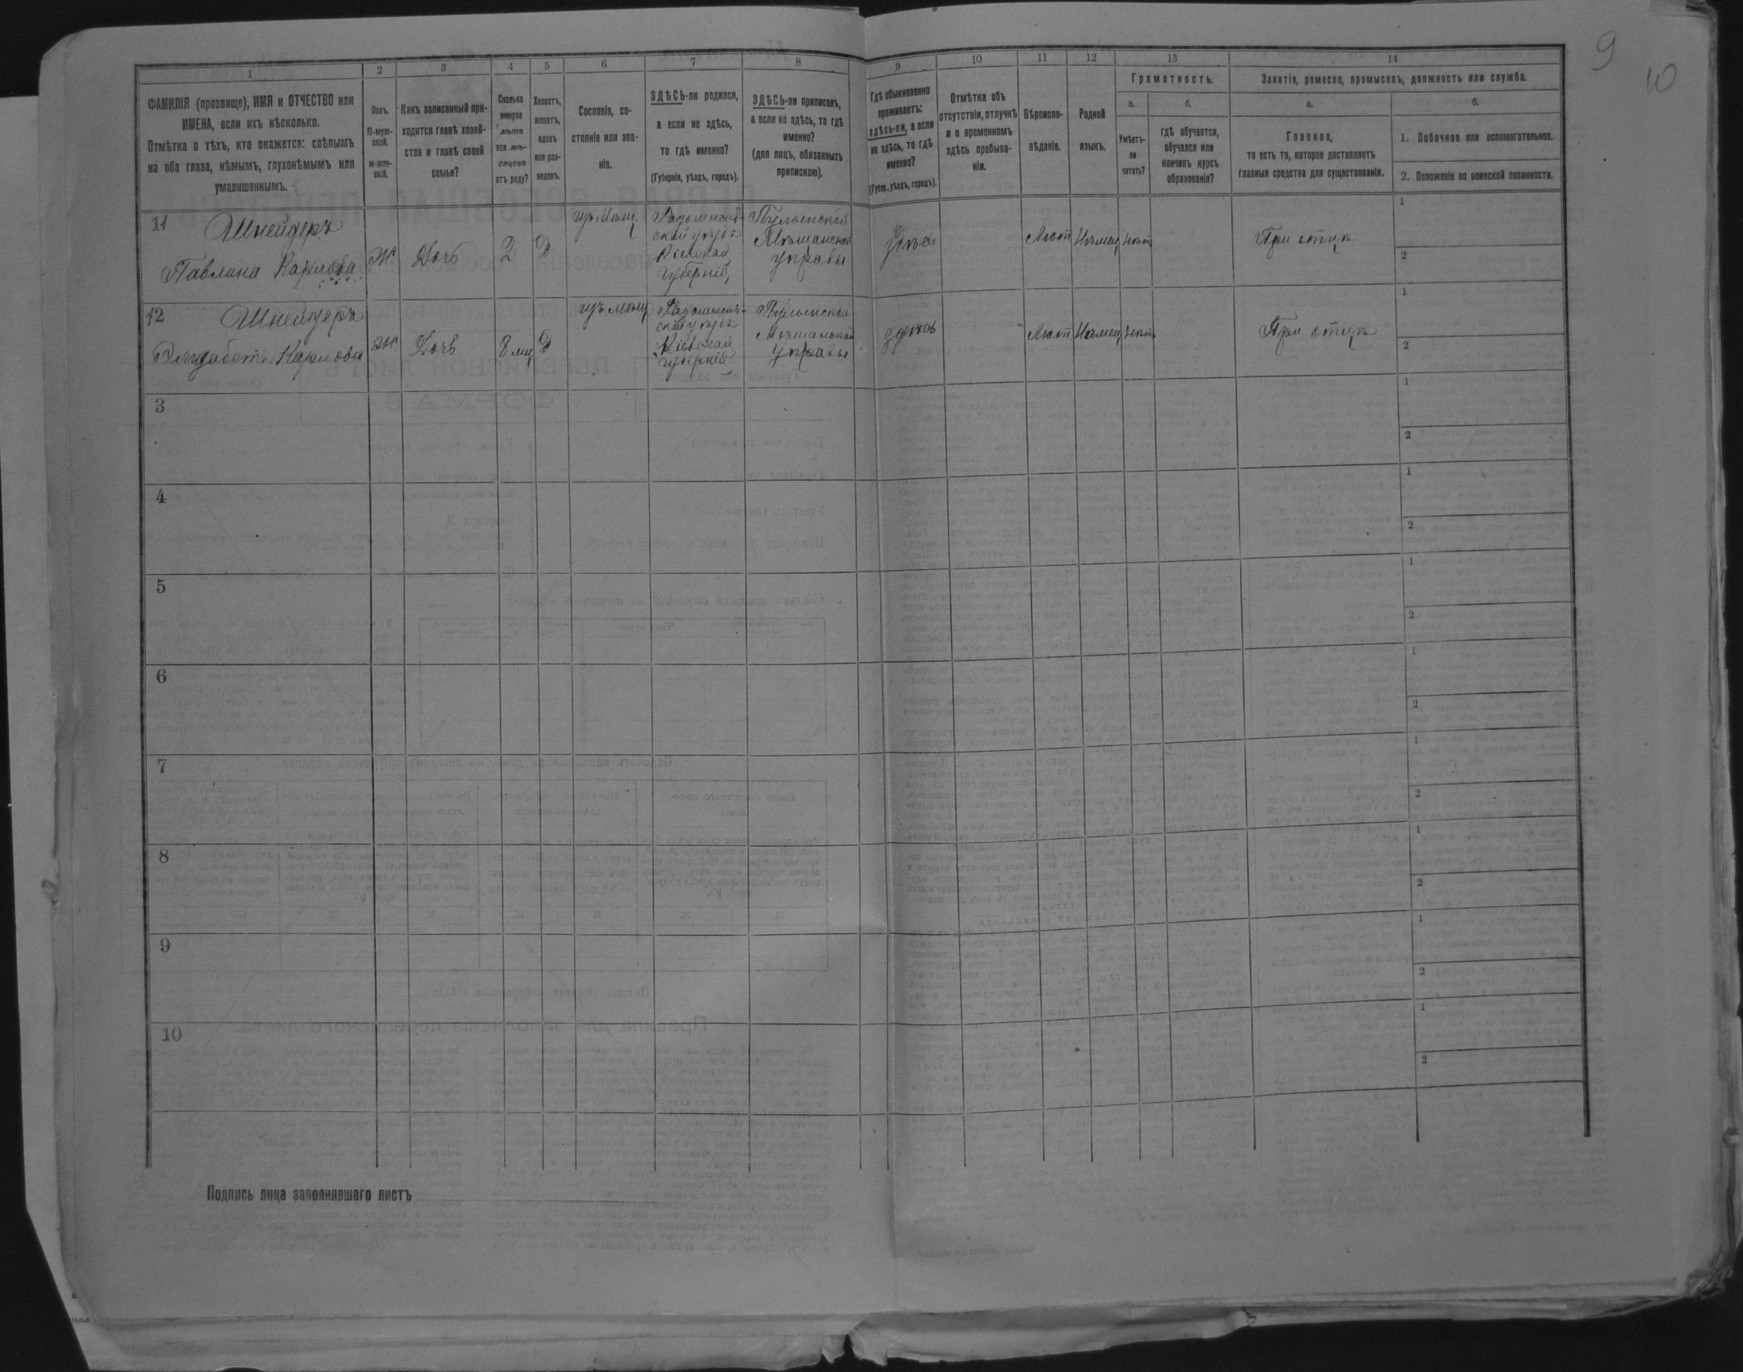 9
10
1 2 3 4 5 6 7 8 9 10 11 12 13 14
ФАМИЛІЯ (прозвище), ИМЯ и ОТЧЕСТВО или
ИМЕНА, если ихъ нѣсколько.
Отмѣтка о тѣхъ, кто окажется: слѣпымъ
на оба глаза, нѣмымъ, глухонѣмымъ или
умалишеннымъ.
Полъ.
М-муж-
ской.
Ж-жен-
скій.
Какъ записанный при-
ходится главѣ хозяй-
ства и главѣ своей
семьи?
Сколько
минуло
лѣтъ
или мѣ-
сяцевъ
отъ роду?
Холостъ,
женатъ,
вдовъ
или раз-
веденъ.
Сословіе, со-
стояніе или зва-
ніе.
ЗДѢСЬ-ли родился,
а если не здѣсь,
то гдѣ именно?
(Губернія, уѣздъ, городъ).
ЗДѢСЬ-ли приписанъ,
а если не здѣсь, то гдѣ
именно?
(для лицъ, обязанныхъ
припискою).
Гдѣ обыкновенно
проживаетъ:
здѣсь-ли, а если
не здѣсь, то гдѣ
именно?
(Губер., уѣздъ, городъ).
Отмѣтка объ
отсутствіи, отлучкѣ
и о временномъ
здѣсь пребыва-
ніи.
Вѣроиспо-
вѣданіе.
Родной
языкъ.
Грамотность.
а.
Умѣетъ-
ли
читать?
б.
гдѣ обучается,
обучался или
кончилъ курсъ
образованія?
Занятія, ремесло, промыселъ, должность или служба.
а.
Главное,
то есть то, которое доставляетъ
главныя средства для существованія.
б.
1. Побочное или вспомогательное.
2. Положеніе по воинской повинности.
11
Шнейдеръ
Павлина Карлова
Ж
Дочь
2
Д
изъ мѣщ.
Радомысль-
скій уѣздъ
Кіевской
губерніи
Мѣщанской
управы
Лют
Нѣмец
нѣтъ
При отцѣ
1
2
12
Шнейдеръ
Елизабета Карлова
Ж
Дочь
8 мѣц
Д
изъ мѣщ
Радомысль-
скій уѣздъ
Кіевской
губерніи
Мѣщанской
Управы
здѣсь
Лют
Нѣмец
нѣтъ
При отцѣ
1
2
3
1
2
4
1
2
5
1
2
6
1
2
7
1
2
8
1
2
9
1
2
10
1
2
Подпись лица заполнявшаго листъ